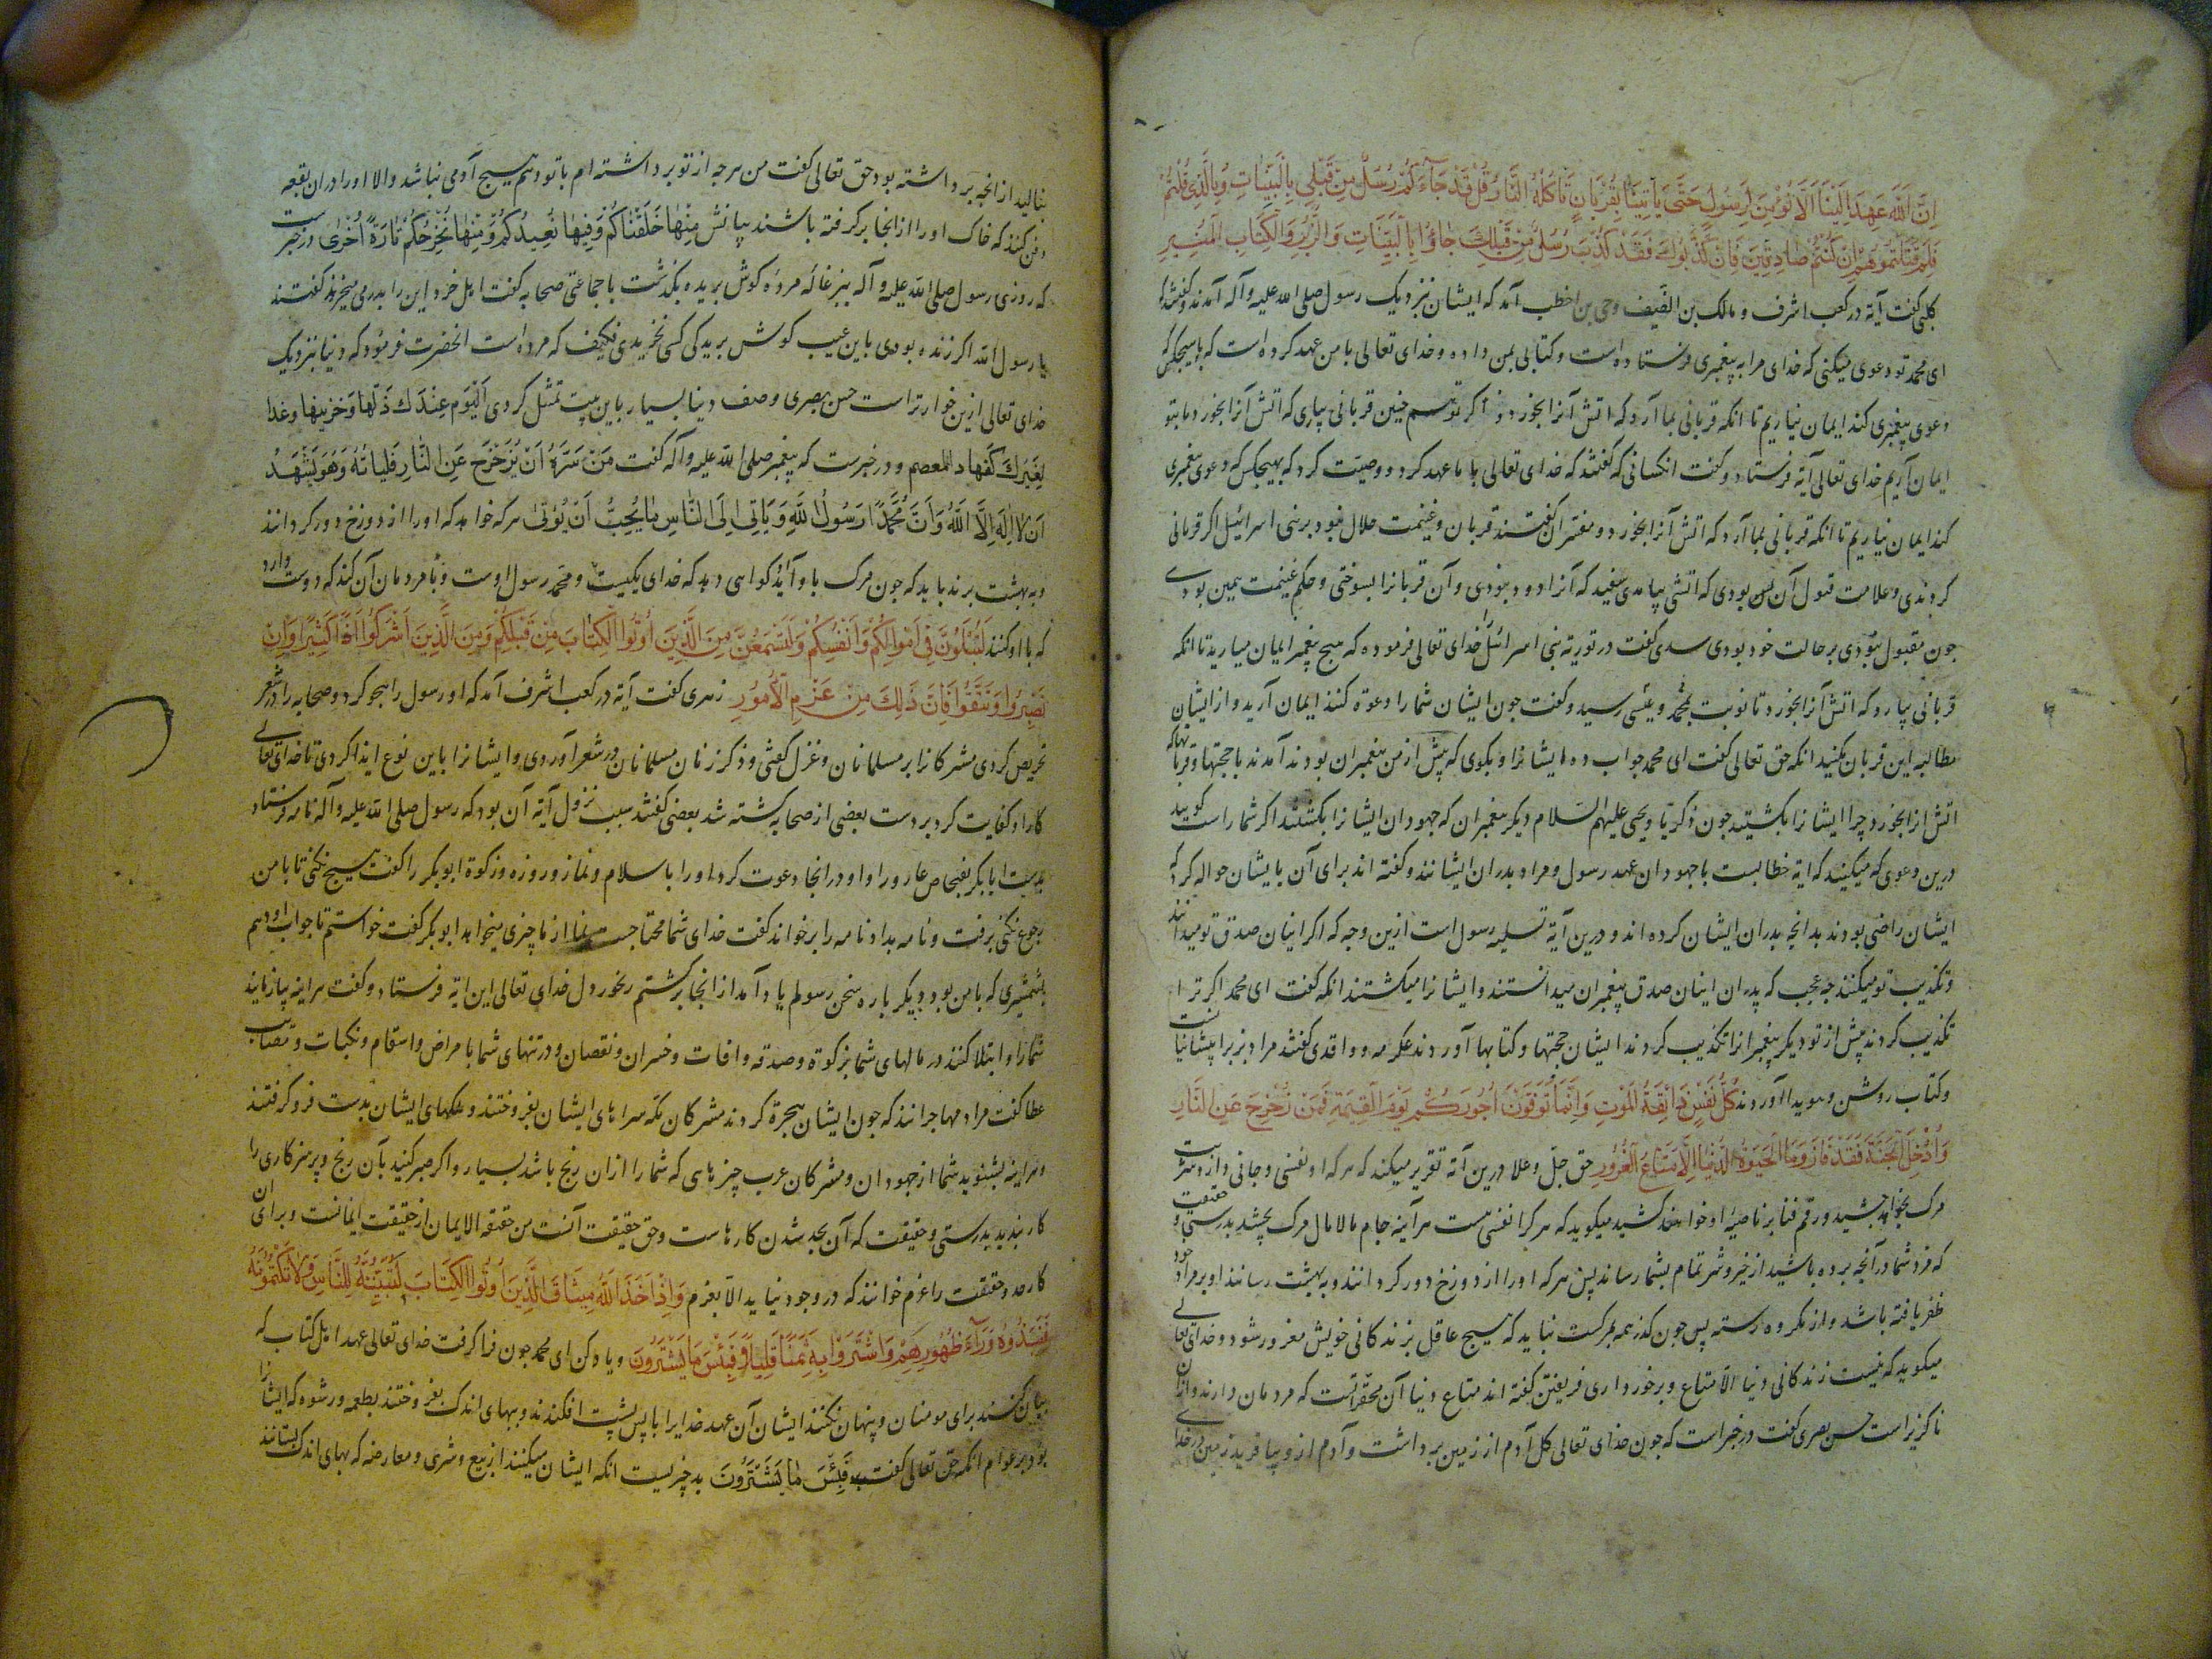 اِنَّ اللَّهَ عَهِدَ اِلَیْنَا اَلَّا نُؤْمِنَ لِرَسُولٍ حَتَّی یَأْتِیَنَا بِقُرْبَانٍ تَأْکُلُهُ النَّارُ قُلْ قَدْ جَآءَکُمْ رُسُلٌ مِنْ قَبْلِی بِالْبَیِّنَاتِ وَبِالَّذِی قُلْتُمْ
فَلِمَ قَتَلْتُمُوهُمْ اِنْ کُنْتُمْ صَادِقِینَ فَاِنْ کَذَّبُوکَ فَقَدْ کُذِّبَ رُسُلٌ مِنْ قَبْلِکَ جَاؤُا بِالْبَیِّنَاتِ وَالزُّبُرِ وَالْکِتَابِ الْمُنِیرِ
کلبی کفت آیة در کعب اشرف و مالک بن الضیف وحی بن اخطب آمد که ایشان نزدیک رسول صلی الله علیه وآله آمدند و کفتند که
ای محمد تو دعوی میکنی که خدای مرا به پیغمبری فرستاده است و کتابی بمن داده و خدای تعالی با من عهد کرده است که باهیچکس که
دعوی پیغمبری کند ایمان نیاریم تا انکه قربانی بما آرد که اتش آنرا بخورد اکر تو هم چنین قربانی بیاری که اتش آنرا بخورد ما بتو
ایمان آریم خدای تعالی آیة فرستاد و کفت انکسانی که کفتند که خدای تعالی با ما عهد کرد و وصیت کرد که بهیچکس که دعوی پیغمبری
کند ایمان نیاریم تا انکه قربانی بما آرد که اتش آنرا بخورد و مفسران کفتند قربان و غنیمت حلال نبود بر بنی اسرائیل اکر قربانی
کردندی و علامت قبول آن بودی که اتشی بیامدی سفید که آنرا دود نبودی و آن قربانرا بسوختی و حکم غنیمت همین بودی
چون مقبول نبودی بر حالت خود بودی سدی کفت در توریة بنی اسرائیل خدای تعالی فرموده که هیچ پیغمبر ایمان میارید تا انکه
قربانی بیارد که اتش آنرا بخورد تا نوبت بمحمد و عیسی رسید و کفت جون ایشان شما را دعوة کنند ایمان آرید و از ایشان
مطالبه این قربان مکنید انکه حق تعالی کفت ای محمد جواب ده ایشانرا و بکوی که پیش از من پیغمبران بودند آمدند با حجتها و قربانها که
اتش از ابخورد چرا ایشانرا بکشتید جون ذکریا و یحیی علیهم السلام و دیکر پیغمبران که جهودان ایشانرا بکشتند اکر شما راست کویید
درین دعوی که میکنید که ایة خطابست با جهودان عهد رسول و مراد پدران ایشانند و کفته اند برای آن با یشان حواله کرد که
ایشان راضی بودند بدانچه پدران ایشان کرده اند و درین آیة تسلیه رسول است ازین وجه که اکر اینان صدق تو میدانند
و تکذیب تو میکنند چه عجب که پدران اینان صدق پیغمبران میدانستند و ایشانرا میکشتند انکه کفت ای محمد اکر ترا
تکذیب کردند پیش از تو دیکر پیغمبرانرا تکذیب کردند ایشان حجتها و کتابها آوردند عکرمه و واقدی کفتند مراد
و کتاب روشن و هویدا آوردند کُلُّ نَفْسٍ ذَائِقَةُ الْمَوْتِ وَاِنَّمَا تُوَفَّوْنَ اُجُورَکُمْ یَوْمَ الْقِیٰمَةِ فَمَنْ زُحْزِحَ عَنِ النَّارِ
وَاُدْخِلَ الْجَنَّةَ فَقَدْ فَازَ وَمَا الْحَیٰوةُ الدُّنْیَا اِلَّا مَتَاعُ الْغُرُورِ حق جل و علا درین آیة تقریر میکند که هر که او نفسی و جانی دارد
مرک بخواهد چشید و رقم فنا بر ناصیه او خواهند کشید میکوید که هر کرا نفسی هست هر آینه جام مالامال مرک بچشد بدرستی و حقیقت
که مزد شما در آنچه برده باشید از خیر و شر تمام بشما رساند پس هر که اورا از دوزخ دور کردانند و به بهشت رسانند او بر مراد خود
ظفر یافته باشد و از مکروه رسته پس جون کذر همه بر مرکست نباید که هیچ عاقل بزندکانی خویش مغرور شود و خدای تعالی
میکوید که نیست زندکانی دنیا الا متاع و برخورداری فریفتن کفته اند متاع دنیا آن محقراتست که مردمان دارند و از ان
ناکزیر است حسن بصری کفت در خبر است که جون خدای تعالی کل آدم از زمین برداشت و آدم ازو بیافرید زمین در خدای
بنالید از انچه برداشته بود حق تعالی کفت من هرچه از تو برداشته ام با تو دهم هیچ آدمی نباشد والا اورا در ان بقعه
دفن کنند که خاک اورا از انجا بر کرفته باشند بیانش مِنْهَا خَلَقْنَاکُمْ وَفِیهَا نُعِیدُکُمْ وَمِنْهَا نُخْرِجُکُمْ تَارَةً اُخْرٰی در خبر است
که روزی رسول صلی الله علیه وآله ببزغاله مرده کوش بریده بکذشت با جماعتی صحابه کفت اهل خرد این را بدرمی میخرند کفتند
یا رسول الله اکر زنده بودی باین عیب کوش بریدکی کس نخریدی فکیف که مرده است انحضرت فرمود که دنیا نزدیک
خدای تعالی ازین خوارتر است حسن بصری وصف دنیا بسیار باین بیت تمثل کردی اَلْیَوْمَ عِنْدَکَ دَلُّهَا وَحَدِیثُهَا وَغَدًا
لِغَیْرِکَ کَفُّهَا والمعصم و در خبرست که پیغمبر صلی الله علیه وآله کفت مَنْ سَرَّهُ اَنْ یُزَحْزَحَ عَنِ النَّارِ فَلْیَاْتِهُ وَهُوَ یَشْهَدُ
اَنْ لَا اِلٰهَ اِلَّا اللّٰهُ وَاَنَّ مُحَمَّدًا رَسُولُ اللّٰهِ وَیَاْتِی اِلَی النَّاسِ مَا یُحِبُّ اَنْ یُؤْتٰی هر که خواهد که اورا از دوزخ دور کردانند
و به بهشت برند باید که جون مرک باو آید کواهی دهد که خدای یکیست و محمد رسول اوست و با مردمان آن کند که دوست دارد
که با او کنند لَتُبْلَوُنَّ فِی اَمْوَالِکُمْ وَاَنْفُسِکُمْ وَلَتَسْمَعُنَّ مِنَ الَّذِینَ اُوتُوا الْکِتَابَ مِنْ قَبْلِکُمْ وَمِنَ الَّذِینَ اَشْرَکُوا اَذًی کَثِیرًا وَاِنْ
تَصْبِرُوا وَتَتَّقُوا فَاِنَّ ذَلِکَ مِنْ عَزْمِ الْاُمُورِ زهری کفت آیة در کعب اشرف آمد که او رسول را هجو کرد و صحابه را در شعر
تحریص کردی مشرکانرا بر مسلمانان و غزل کفتی و ذکر زنان مسلمانان در شعر آوردی و ایشانرا باین نوع ایذا کردی تا خدای تعالی
کار او کفایت کرد بر دست بعضی از صحابه کشته شد بعضی کفتند سبب نزول آیة آن بود که رسول صلی الله علیه وآله نامه فرستاد
بدست ابابکر بفنحاص عازورا و اورا انجا دعوت کرد اورا با سلام و نماز و روزه و زکوة ابوبکر را کفت هیچ نکنی تا با من
رجوع نکنی برفت و نامه بداد نامه را برخواند کفت خدای شما محتاجست از ما چیزی میخواهد ابوبکر کفت خواستم تا جواب او دهم
بشمشیری که با من بود دیکر باره سخن رسولم یاد آمد از انجا برکشتم خدای تعالی این ایة فرستاد و کفت هر اینه بیازمایند
شمارا و ابتلا کنند در مالهای شما بزکوة و صدقه و افات و خسران و نقصان و در تنهای شما با مراض و اسقام و نکبات و مصائب
عطا کفت مراد مهاجرانند که جون ایشان هجرة کردند مشرکان مکه سراهای ایشان بفروختند و ملکهای ایشان بدست فرو کرفتند
و هراینه بشنوید شما از جهودان و مشرکان عرب چیزهایی که شما را ازان رنج باشد بسیار و اکر صبر کنید بآن رنج و پرهیزکاری را
کار بندید بدرستی و حقیقت که آن بجد شدن کارهاست و حق حقیقت آنست من حقیقة الایمان از حقیقت ایمانست و برای ان
کارهد و حقیقت را عزم خوانند که در وجود نیاید الا بعزم وَاِذْ اَخَذَ اللّٰهُ مِیثَاقَ الَّذِینَ اُوتُوا الْکِتَابَ لَتُبَیِّنُنَّهُ لِلنَّاسِ وَلَا تَکْتُمُونَهُ
فَنَبَذُوهُ وَرَآءَ ظُهُورِهِمْ وَاشْتَرَوْا بِهِ ثَمَنًا قَلِیلًا فَبِئْسَ مَا یَشْتَرُونَ و یاد کن ای محمد جون فرا کرفت خدای تعالی عهد اهل کتاب که
بیان کنند برای مومنان و پنهان نکنند ایشان آن عهد خدایرا باپس پشت افکندند و ببهای اندک بفروختند بطعمه و رشوه که ایشانرا
بود بر عوام انکه حق تعالی کفت فَبِئْسَ مَا یَشْتَرُونَ بد چیزیست انکه ایشان میکنند از بیع و شری و معاوضه که بهای اندک بستانند